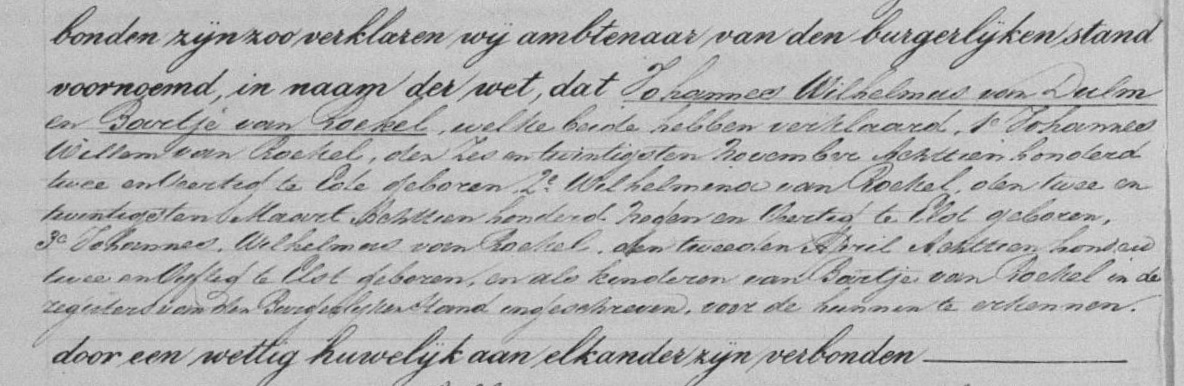 bonden zijn zoo verklaren wij ambtenaar van den burgerlijken stand
voornoemd, in naam der wet, dat Johannes Wilhelmus van Dulm
en Baartje van Roekel, welke beide hebben verklaard, 1e Johannes
Willem van Roekel, den Zes en twintigsten November Achttien honderd
twee en Veertig te Ede geboren 2e Wilhelmina van Roekel, den twee en
twintigsten Maart Achttien honderd Negen en Veertig te Elst geboren,
3e Johannes, Wilhelmus van Roekel, den tweeden April Achttien honderd
twee en Vyftig te Elst geboren, en als kinderen van Baartje van Roekel in de
registers van den Burgerlyken Stand ingeschreven, voor de hunnen te erkennen.
door een wettig huwelijk aan elkander zijn verbonden